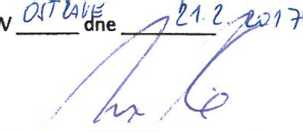 V OSTRAVĚ dne 21.2.2017